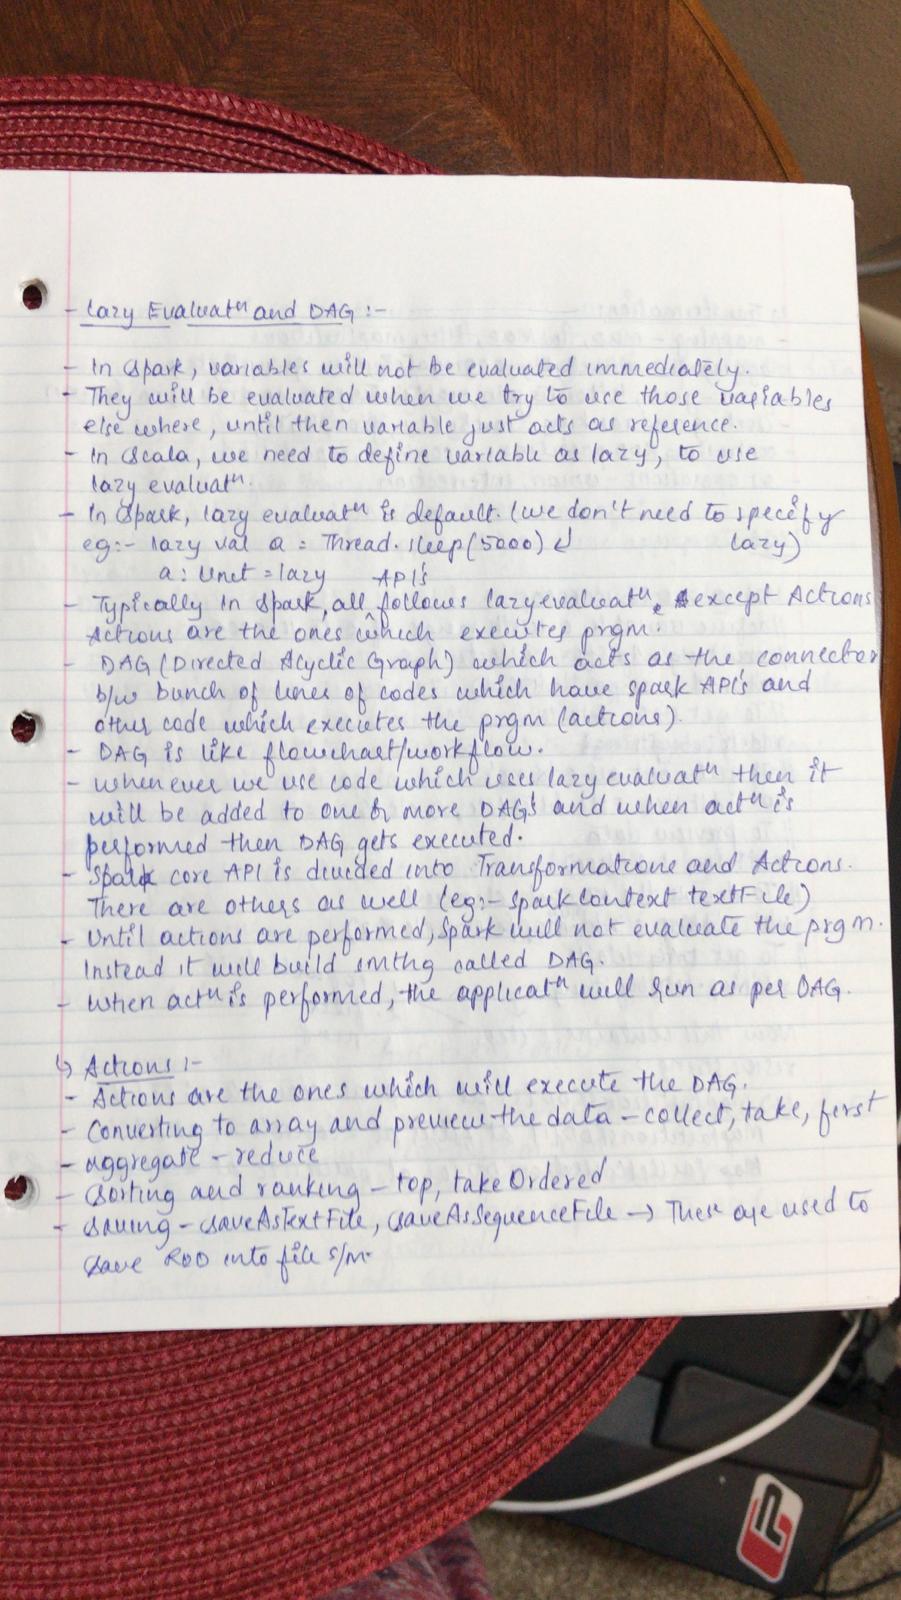 - Lazy Evaluatⁿ and DAG :-
- In Spark, variables will not be evaluated immediately.
- They will be evaluated when we try to use those variables
else where, until then variable just acts as reference.
- In Scala, we need to define variable as lazy, to use
lazy evaluatⁿ.
- In Spark, lazy evaluatⁿ is default. (we don't need to specify
eg:- lazy val a = Thread.sleep(5000) ↲ lazy)
a: Unit = lazy
- Typically in Spark, all API's follows lazy evaluatⁿ, except Actions
Actions are the ones which executes prgm.
- DAG (Directed Acyclic Graph) which acts as the connector
b/w bunch of lines of codes which have spark API's and
other code which executes the prgm (actions).
- DAG is like flowchart/workflow.
- Whenever we use code which uses lazy evaluatⁿ then it
will be added to one or more DAG's and when actⁿ is
performed then DAG gets executed.
- Spark core API is divided into Transformations and Actions.
There are others as well (eg:- sparkContext textFile)
- Until actions are performed, Spark will not evaluate the prgm.
Instead it will build smthg called DAG.
- When actⁿ is performed, the applicatⁿ will run as per DAG.
↳ Actions :-
- Actions are the ones which will execute the DAG.
- Converting to array and preview the data - collect, take, first
- aggregate - reduce
- Sorting and ranking - top, takeOrdered
- Saving - saveAsTextFile, saveAsSequenceFile → These are used to
save RDD into file s/m.